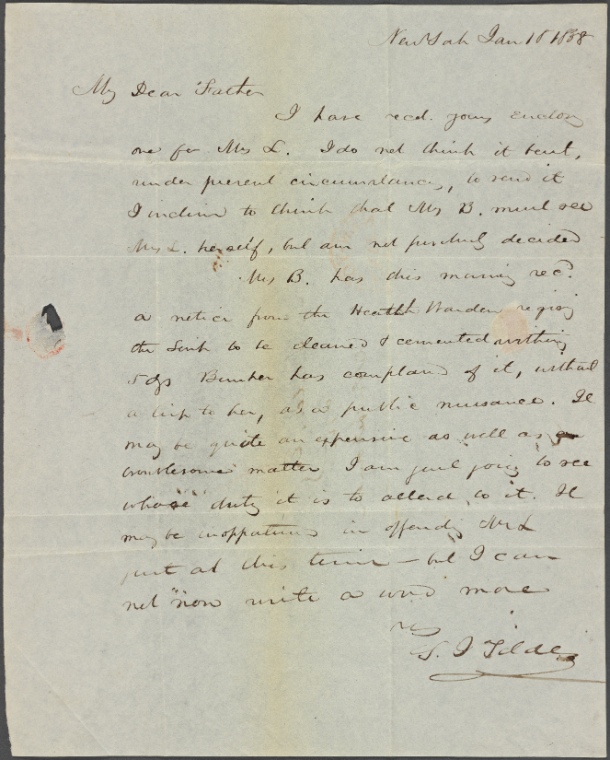 New York Jan 16 1838
My Dear Father
I have recd. yours enclosing
one for Mrs L. I do not think it best,
under present circumstances, to send it
I incline to think that Mrs B. must see
Mrs L. herself, but am not positively decided
Mrs B. has this morning recd.
a notice from the Health Warden requiring
the Sink to be cleaned & cemented within
5 dys Bunker has complained of it, without
a lisp to her, as a public nuisance. It
may be quite an expensive as well as
troublesome matter I am just going to see
whose duty it is to attend to it. It
may be inopportune in offending Mr L
just at this time — but I can
not now write a word more
S. J Tilden